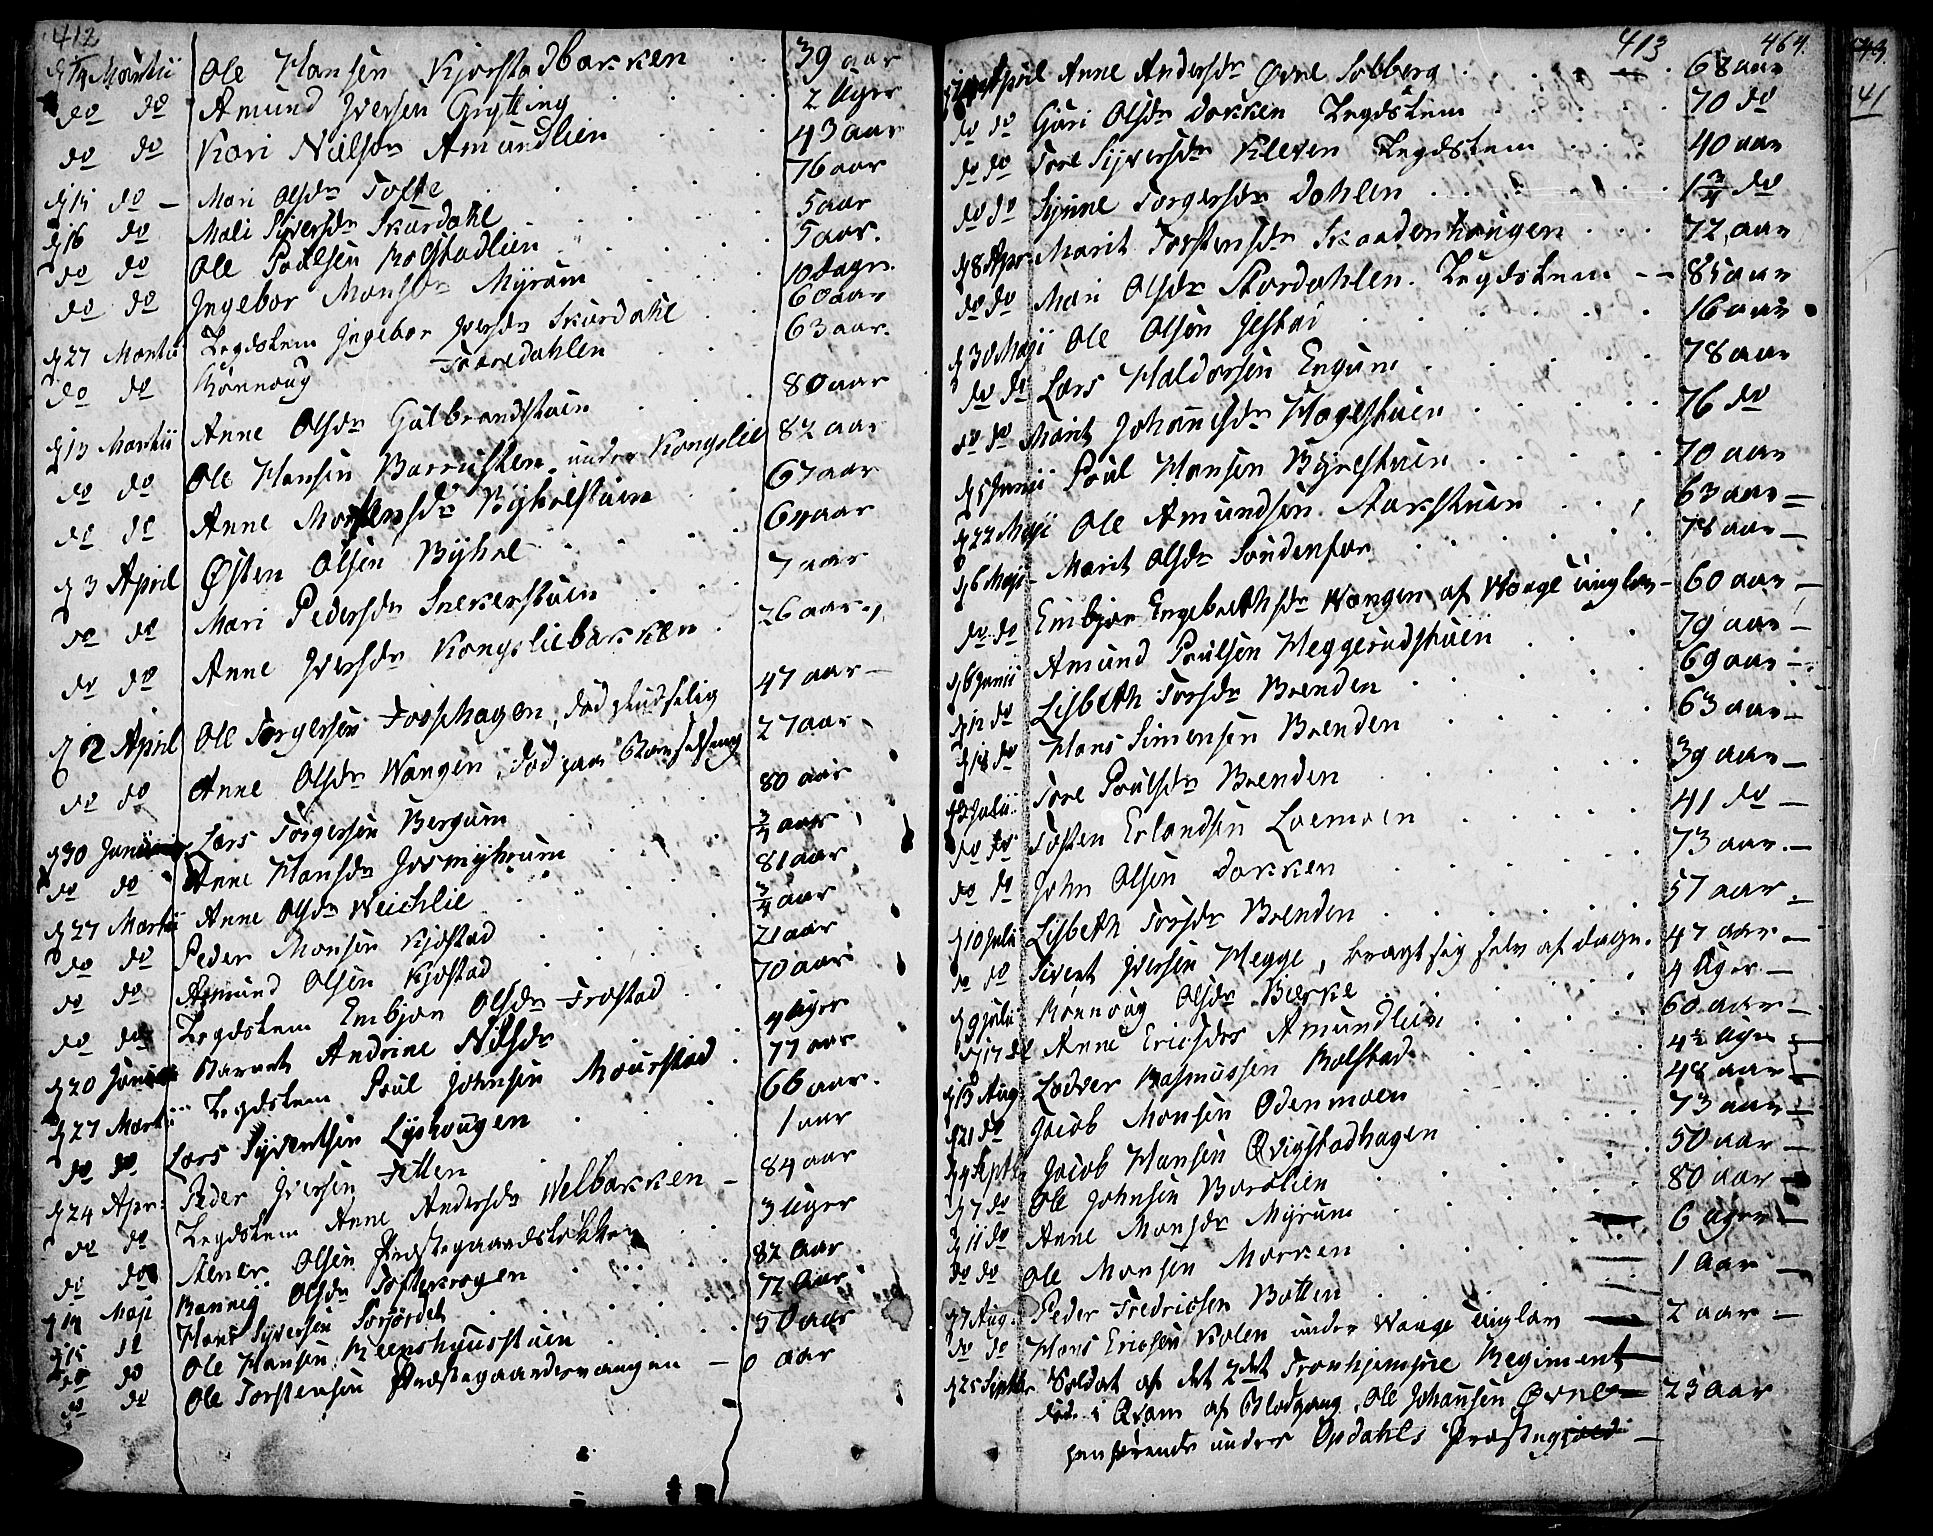 412
d 14 Martii Ole Hansen Kjorstadbakken 39 aar
do do Amund Iversen Grytting 2 Uger
do do Kari Nilsdr Amundlien 43 aar
d 15 do Mari Olsdr Tofte 76 aar
d 16 do Mali Siversdr Skurdahl 5 aar
do do Ole Poulsen Bolstadlien 5 aar.
do do Ingebor Monsdr Myrum 10 dage.
d 27 Martii Legdslem Ingebor Iversdr Skurdahl 60 aar
do do Rønnoug Toaredahlen 63 aar.
d 13 Martii Anne Olsdr Gulbrandstuen 80 aar
do do Ole Hansen Barrusten under Kongslie 82 aar
do do Anne Mortensdr Byholstuen 67 aar
d 3 April Østen Olsen Byhol 64 aar
do do Mari Pedersdr Snekerstuen 7 aar
do do Anne Iversdr Kongsliebakken 26 aar
d 12 April Ole Torgersen Fosshagen, död pludselig 47 aar
do do Anne Olsdr Wangen, död paa Barselseng 27 aar
d 30 Junii Lars Torgersen Bergum 80 aar
do do Anne Hansdr 3/4 aar
d 27 Martii Anne Olsdr Weichlie 81 aar
do do Peder Monsen Kjøstad 3/4 aar
do do Amund Olsen Kjøstad 21 aar
do do Legdslem Embjør Olsdr Frostad 70 aar
d 20 Junii Barnet Andrine Nilsdr 4 Uger
d 27 Martii Legdslem Poul Johnsen Mourstad 77 aar
do do Lars Syvertsen Lyshougen 66 aar.
d 24 Apr: Peder Iversen Fetten 1 aar
do do Legdslem Anne Andersdr Welbakken 84 aar
do do Olsen Præstegaardsløkken 3 Uger
d 14 Maji Ranneg Olsdr Tofterogen 82 Aar
d 15 do Hans Syversen 72 Aar
do do Ole Hansen 50 aar
do do Ole Torstensen Præstegaardsvangen 0 aar
413 464
April Anne Andersdr Øvre Solberg 68 aar
do do Guri Olsdr Dokken Legdslem 70 do
do do Tore Syversdr Kleven Legdslem 40 aar
do do Synne Torgersdr Dahlen 1 3/4 do
d 8 Apr: Marit Torstensdr Skaadenhougen 72 aar
do do Mari Olsdr Stordahlen. Legdslem 85 aar
d 30 Maji Ole Olsen Jestad 16 aar
do do Lars Haldorsen Engum 78 aar
do do Marit Johansdr Hagestuen 76 do
d 5 Junii Poul Hansen Byrestuen 70 aar
d 22 Maji Ole Amundsen Aakstuen 63 aar
d 6 Maji Marit Olsdr Søndenfor 78 aar
do do Embjør Engebrethsdr Wangen af Waage 60 aar
d 6 Junii Amund Poulsen Heggerudstuen 79 aar
d 12 do Lisbeth Torsdr Brenden 69 aar
d 18 do Hans Simensen Brenden 63 aar
Julii Tore Poulsdr Brenden 39 aar
do do Tosten Erlandsen Loemoen 41 do
do do John Olsen Dokken 73 aar.
d 10 Julii Lisbeth Torsdr Brenden 57 aar
do do Sivert Iversen Hegge, bragt sig selv af dage. 47 aar.
d 9 Julii Rønnoug Olsdr Bierke 4 Uger
d 17 do Anne Ericsdr Amundlien 60 aar
d 13 Aug: Lodver Rasmussen Bolstad 4 1/2 Uger
d 21 do Jacob Monsen Ødenmoen 48 aar
d 4 Septbr Jacob Hansen Qvigstadhagen 73 aar
d 7 do Ole Johnsen Baralien 50 aar
d 11 do Anne Monsdr Myrum 80 aar
do do Ole Monsen Morken 6 Uger
d 7 Aug. Peder Fredricsen Botten 1 Aar
do do Hans Ericsen Kolen under Waage 2 aar
d 25 Septbr Soldat af det 2det Tronhjemske Regiment
død i Qvam af Blodgang, Ole Johansen Øvne 23 Aar
henhørende under Opdahls Præstegjæld
41